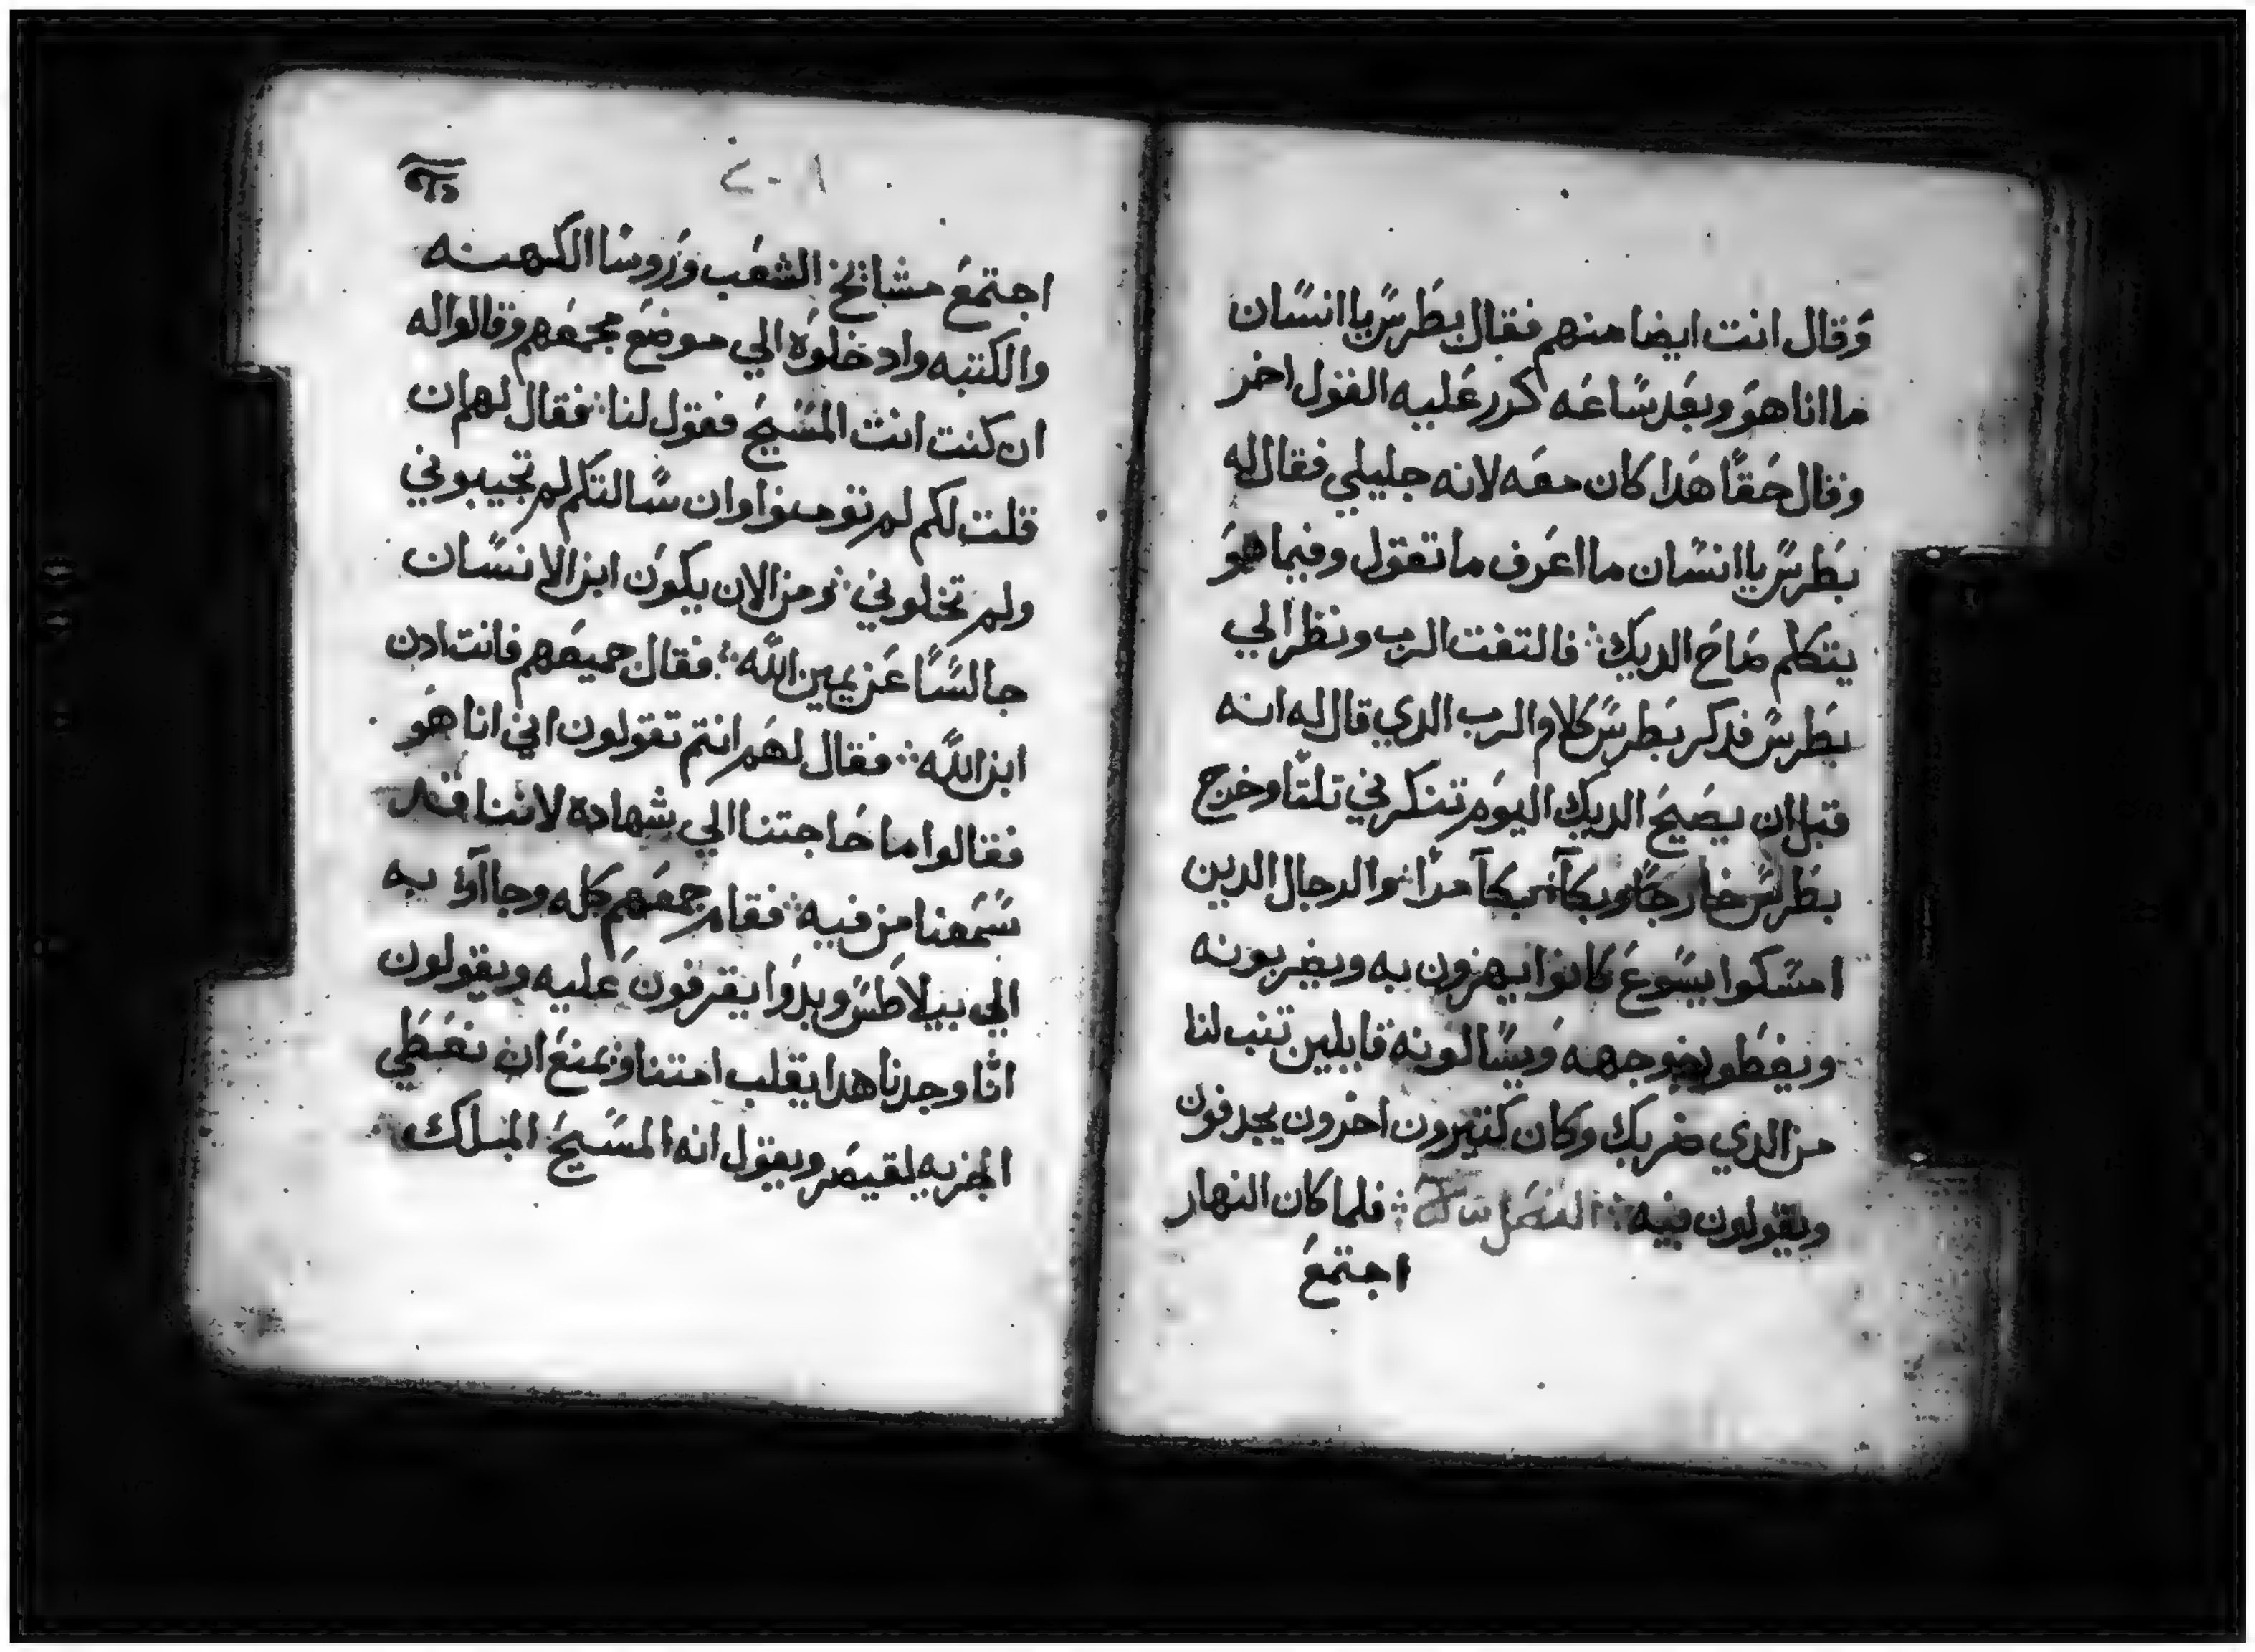 وقال انت ايضا منهم فقال بطرس يا انسان
ما انا هو وبعد ساعه كرر عليه القول اخر
وقال حقا هدا كان معه لانه جليلي فقال له
بطرس يا انسان ما اعرف ما تقول وفيما هو
يتكلم صاح الديك فالتفت الرب ونظر الي
بطرس فدكر بطرس كلام الرب الدي قال له انه
قبل ان يصيح الديك اليوم تنكرني تلتا وخرج
بطرس خارجا وبكا بكا مرا والرجال الدين
امسكوا يسوع كانوا يهزون به ويضربونه
ويغطون وجهه ويسالونه قايلين تنب لنا
من الدي ضربك وكان كتيرون اخرون يجدفون
ويقولون فيه الفصل فلما كان النهار
اجتمع
اجتمع مشايخ الشعب وروسا الكهنه
والكتبه وادخلوه الي موضع مجمعهم وقالوا له
ان كنت انت المسيح فقول لنا فقال لهم ان
قلت لكم لم تومنوا وان سالتكم لم تجيبوني
ولم تخلوني ومن الان يكون ابن الانسان
جالسا عن يمين الله فقال جميعهم فانت ادن
ابن الله فقال لهم انتم تقولون اني انا هو
فقالوا ما حاجتنا الي شهاده لاننا قد
سمعنا من فيه فقام جمعهم كله وجاآوا به
الي بيلاطس وبدوا يقرفون عليه ويقولون
انا وجدنا هدا يقلب امتنا ويمنع ان نعطي
الجزيه لقيصر ويقول انه المسيح الملك